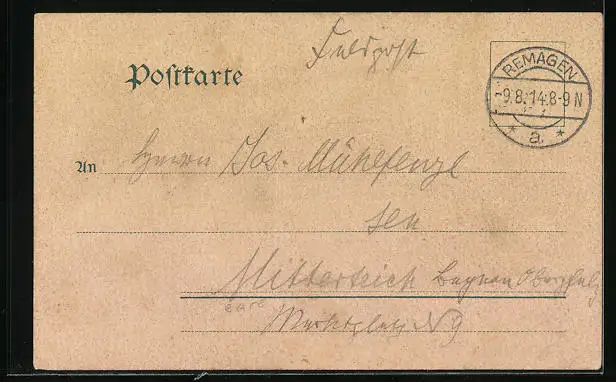 Feldpost
Postkarte
REMAGEN
-9.8.14.8-9N
* a. *
An Herrn Jos. Mühlfenzl
sen
Mitterteich Bayern Oberpfalz
Marktplatz N 9